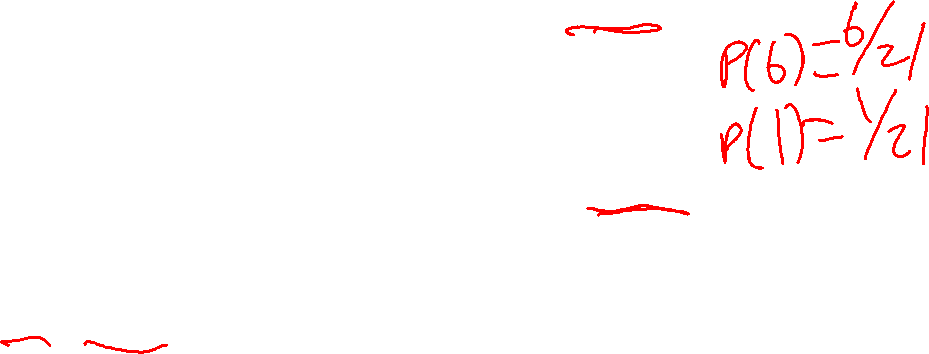 P(6)=6/21
P(1)=1/21